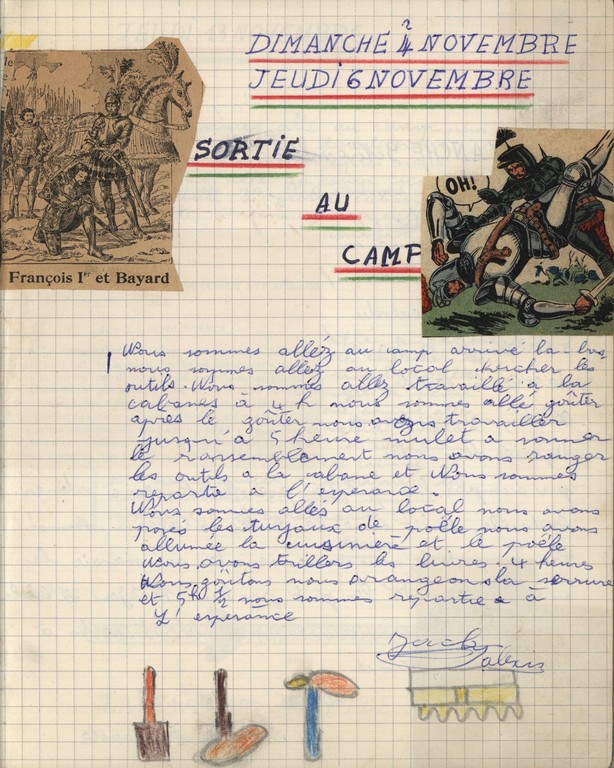 DIMANCHE 2 NOVEMBRE
JEUDI 6 NOVEMBRE
SORTIE
AU
CAMP
François Ier et Bayard
OH!
Nous sommes alléz au camp arrivé la-bas
nous sommes allez au local chercher les
outils. Nous sommes allez travaillé a la
cabanes à 4 h nous sommes allé goûter
après le goûter nous avons travailler
jusqu'à 5 heure mulet a sonner
le rassemblement nous avons ranger
les outils a la cabane et Nous sommes
repartie a l'esperance.
Nous sommes allés au local nous avons
posés les tuyaux de poêle nous avons
allumée la cuisinière et le poêle
Nous avons trillers les livres 4 heures
Nous goutons nous arangeons la serrure
et 5h ½ nous sommes repartie a à
L'esperance